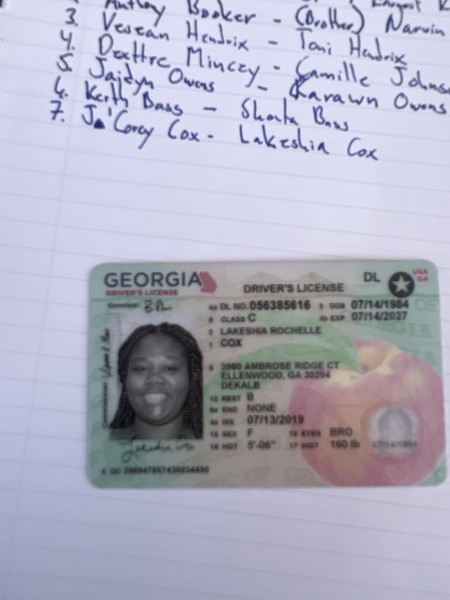 Anthony Booker - (Brother) Narvin
3. Vesean Hendrix - Toni Hendrix
4. Deattre Mincey - Camille Johns
5. Jaidyn Owens - Karawn Owens
6. Keith Bass - Shonta Bass
7. Ja'Corey Cox - Lakeshia Cox
GEORGIA
DRIVER'S LICENSE
DRIVER'S LICENSE
DL
USA
GA
4d DL NO. 056385616 3 DOB 07/14/1984
9 CLASS C 4b EXP 07/14/2027
2 LAKESHIA ROCHELLE
1 COX
8 3980 AMBROSE RIDGE CT
ELLENWOOD, GA 30294
DEKALB
12 REST B
9a END NONE
4a ISS 07/13/2019
15 SEX F 18 EYES BRO
16 HGT 5'-06" 17 WGT 160 lb
07/14/1984